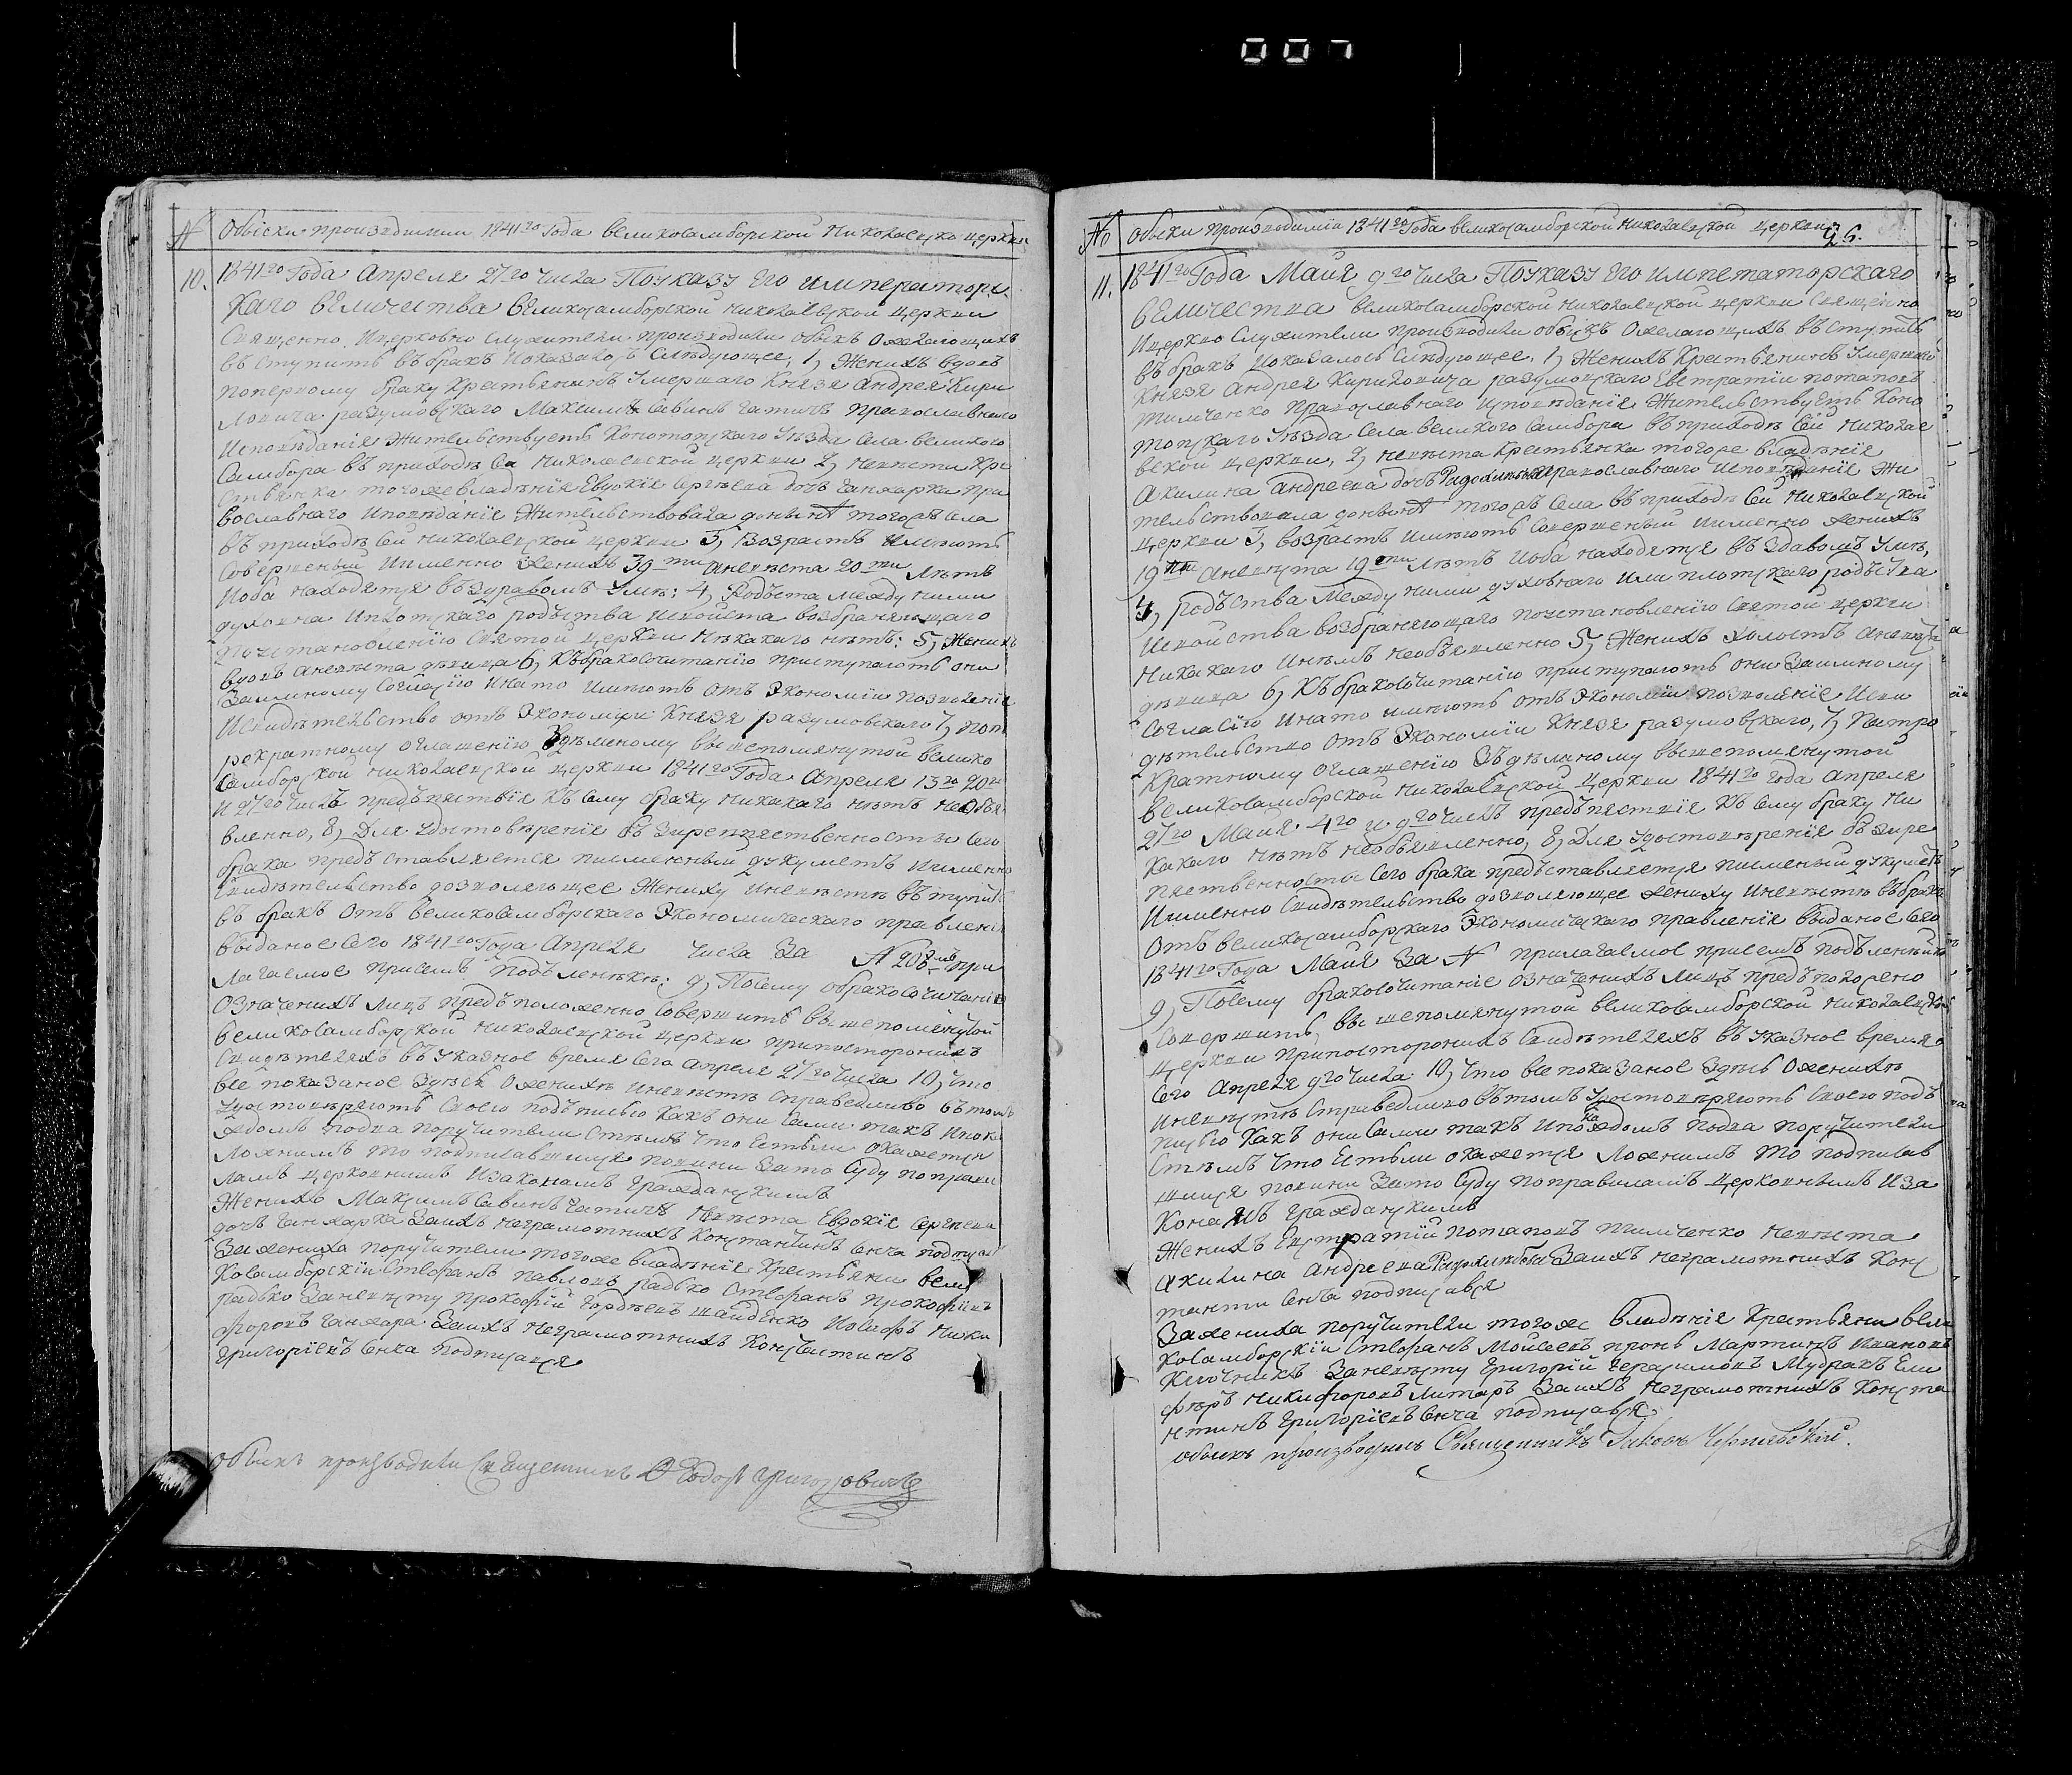 007
№ Обиски произвдимии 1841го Года великосамборской Николаевско церкви
10. 1841го Года Апреля 27го числа Поуказу Его императорс
каго величества великосамборской николаевской церкви
Священно, Ицерковно служители производили обыкъ Ожелающихъ
въступить въ бракъ Иоказалось Следующее, 1, Женихъ вдовъ
поперному браку Крестьянинъ Умершаго Князя Андрея Кири
ловича разумовскаго Максимъ Савинъ Гатичъ православнаго
Исповѣданія Жительствуетъ Конотопскаго Уѣзда Села великого
Самбора въ приходѣ Св Николаевской церкви 2, невѣста Кре
стьянка тогожевладѣнія Евдокія Сергѣева дочъ Ганжарка пра
вославнаго иповѣданіе Жительствовала донынѣ тогожъ Села
въ приходѣ Сей николаевской церкви 3, Возрастъ имѣютъ
Совершеный Иименно Женихъ 39ти Аневѣста 20ти лѣтъ
Иоба находятся въ Здравомъ Умѣ: 4, Родъста между ними
духовна Иплотскаго родъства Исвойста возбраняющаго
поустановленію Святой церкви никакаго нѣтъ: 5, Женихъ
вдовъ Аневѣста дѣвица 6, Къбракосочитанію приступаютъ они
Заимному Согласію Инато имѣютъ отъ Экономіи позволеніе
Исвидѣтельство отъ Экономіи Князя разумовскаго 7, пот
рекратному оглашенію Здѣланому вышепомянутой велико
Самборской николаевской церкви 1841го Года Апреля 13го 20го
и 27го числъ предъпятствія Къ Сему браку никакаго нѣтъ необъя
вленно, 8, Для Удостовѣренія безпрепятственности Сего
брака предъставляется писменный документъ Именно
Свидѣтельство дозволяющее Жениху Иневѣстѣ въступить
въ бракъ отъ великосамборскаго Экономическаго правленія
выданое Сего 1841го Года Апреля числа За № 208мъ при
лагаемое присемъ подъленѣкъ: 9, Посему бракосочитаніе
Означенихъ лицъ предъположенно Совершить вышепомянутой
великосамборской николаевской церкви припостороныхъ
Свидѣтеляхъ въ Указное время Сего Апреля 27го числа 10, что
все показаное Здѣсь Оженихѣ Иневѣстѣ Справедливо вътомъ
Удостовѣряютъ Своею подъписью Какъ они Сами такъ Ипока
ждомъ подва поручители Стѣмъ что Естьли окажется
Ложнымъ то подписавшиеся повини Зато Суду поправи
ламъ церковнимъ Изаконамъ Гражданскимъ
Женихъ Максимъ Савинъ Гатичъ невѣста Евдокія Сергѣева
дочъ Ганжарка Заихъ неграмотныхъ Константинъ Сенча подписался
Зажениха поручители тогоже владѣнія Крестьяни вели
Косамборскіи Стефанъ Павловъ радько Стефанъ Прокофіевъ
радько Заневѣсту прокофій Гордѣевъ шайденко Иосифъ Ники
форовъ Ганжара Заихъ неграмотнихъ Константинъ
Григоріевъ Сенча подписался
обыскъ производили Священникъ Феодоръ Григоровичъ
№ Обыски Производиміи 1841го Года великосамборской николаевской церкви
26.
11. 1841го Года Майя 9го числа Поуказу Его императорскаго
величества великосамборской николаевской церкви Священно
Ицеркво Служители производили обыскъ Ожелающихъ въступить
въ бракъ Иоказалось Слѣдующее, 1, Женихъ Крестьянинъ Умершаго
Князя Андрея Кириловича разумовскаго Евстратіи потаповъ
тимченко православнаго исповѣданія Жительствуетъ Коно
топскаго Уѣзда Села великого Самбора въ приходѣ Сей Николае
вской церкви, 2, невѣста Крестьянка тогоже владѣнія
Акилина Андреева дочъ православнаго Исповѣданіе Жи
тельствовала донынѣ тогожъ Села въ приходѣ Сей Николаевской
церкви 3, возрастъ имѣютъ Совершеный Иименно женихъ
19ти Аневѣста 19ти лѣтъ Иоба находятся въ Здавомъ Умѣ,
4, родъства между ними духовнаго или плотскаго родъства
Исвойства возбраняющаго поустановленію Святой церкви
никакаго Инѣтъ необъявленно 5, Женихъ холостъ Аневѣста
дѣвица 6, Къ бракосочитанію приступаютъ они Заимному
Согласію Инато имѣютъ отъ Экономіи позволяніе Исви
дѣтельство отъ Экономіи Князя разумовскаго, 7, Потро
Кратному оглашенію Здѣланому вышепомянутой
великосамборской николаевской церкви 1841го года Апреля
27го Майя 4го и 9го числъ предъпятствія Къ Сему браку ни
Какаго нѣтъ необъявленно, 8, Для Удостовѣренія безпре
пятственности Сего брака предъставляется писменый документъ
Иименно Свидѣтельство дозволяющее жениху Иневѣстѣ въбракъ
отъ великосамборскаго Экономическаго правленія выданое Сего
1841го Года Майя За № прилагаемое присемъ подъленѣкъ
9, Посему бракосочитаніе Означенихъ лицъ предъположено
Совершить, вышепомянутой великосамборской николаевской
церкви припосторонихъ Свидѣтеляхъ въ Указное время
Сего Апреля 9го числа 10, что все показаное Здѣсь Оженихѣ
Иневѣстѣ Справедливо вътомъ Удостовѣряютъ Своею подъ
писью Какъ они Сами такъ Ипокаждомъ подва поручители
Стѣмъ что Естьли окажется Ложнимъ то подписав
шиися повини Зато Суду поправиламъ церковнымъ Иза
Конамъ Гражданскимъ
Женихъ Евстратій потаповъ тимченко невѣста
Акилина Андреева Заихъ неграмотныхъ Конс
тантинъ Сенча подписався
Зажениха поручители тогоже владѣнія Крестьяни вели
косамборскіи Стефанъ Мойсеевъ пронь Мартинъ Ивановъ
Ключникъ Заневѣсту Григорій Герасимовъ Мудракъ Ели
феръ Никифоровъ Литаръ Заихъ неграмотнихъ Конста
нтинъ Григоріевъ Сенча подписався
обыскъ производилъ Священникъ Іаковъ Чернявскій.